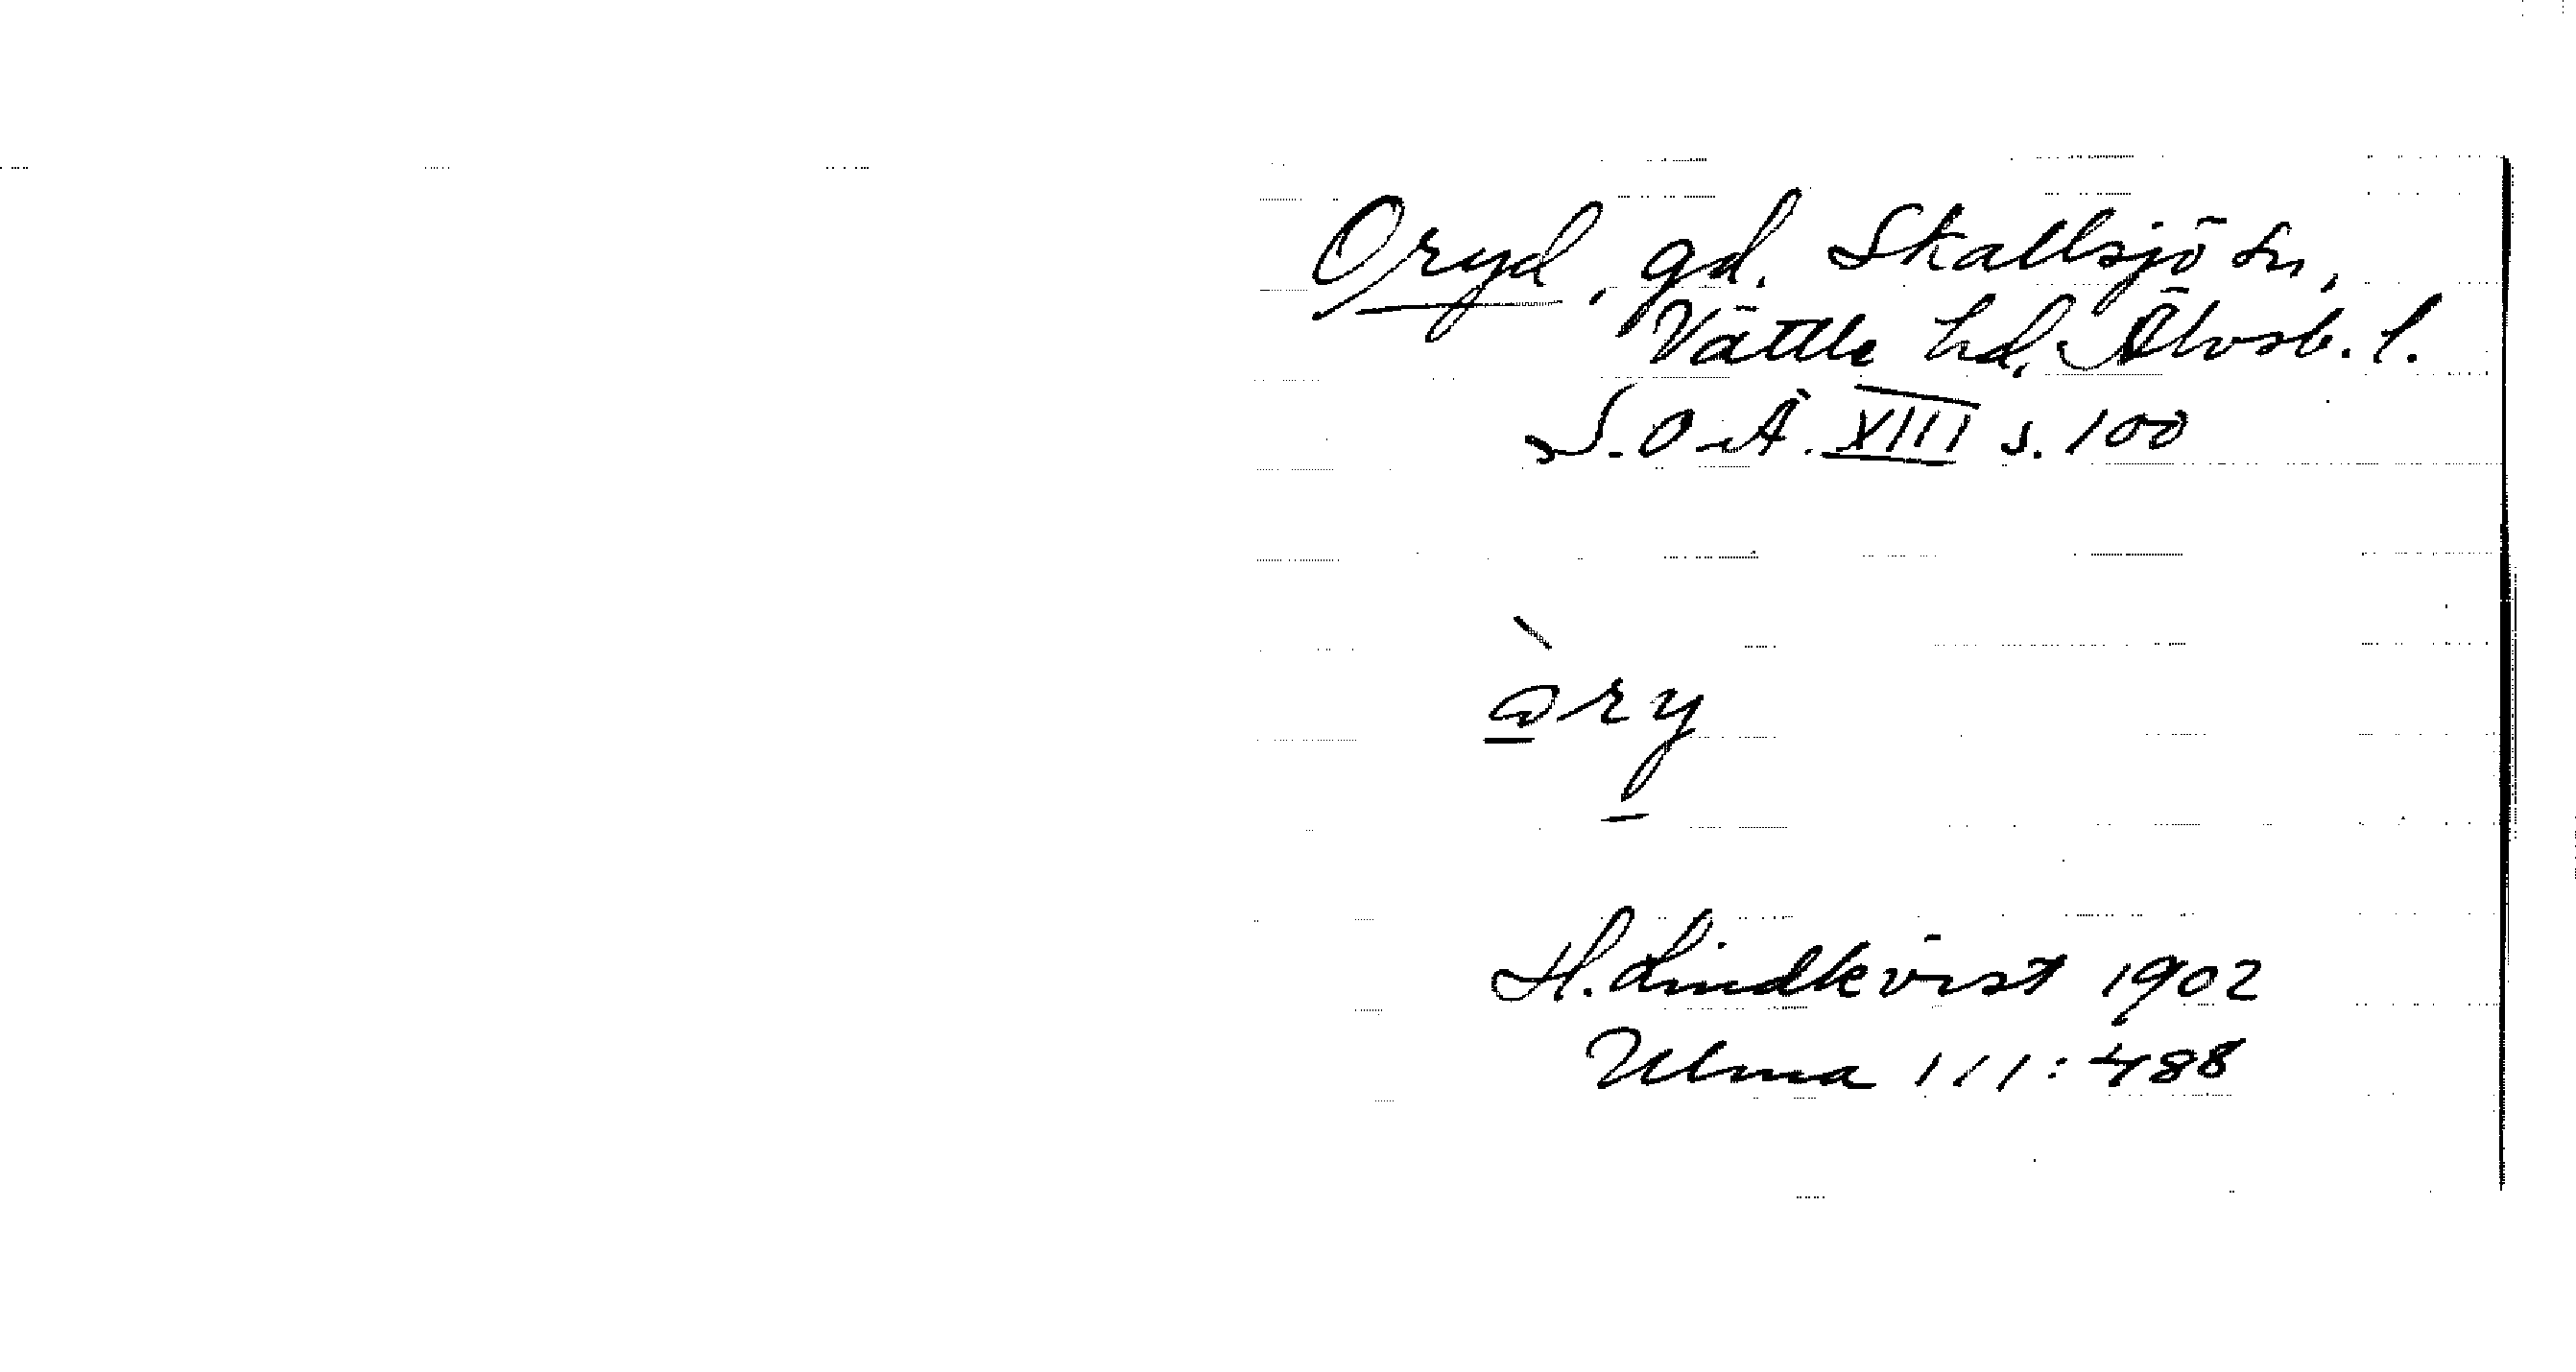 Oryd, gd. Skallsjö sn,
Vättle hd. Älvsb. l.
S.O.Ä. XIII s. 100
ry
H. Lindkvist 1902
Ulma 111:488